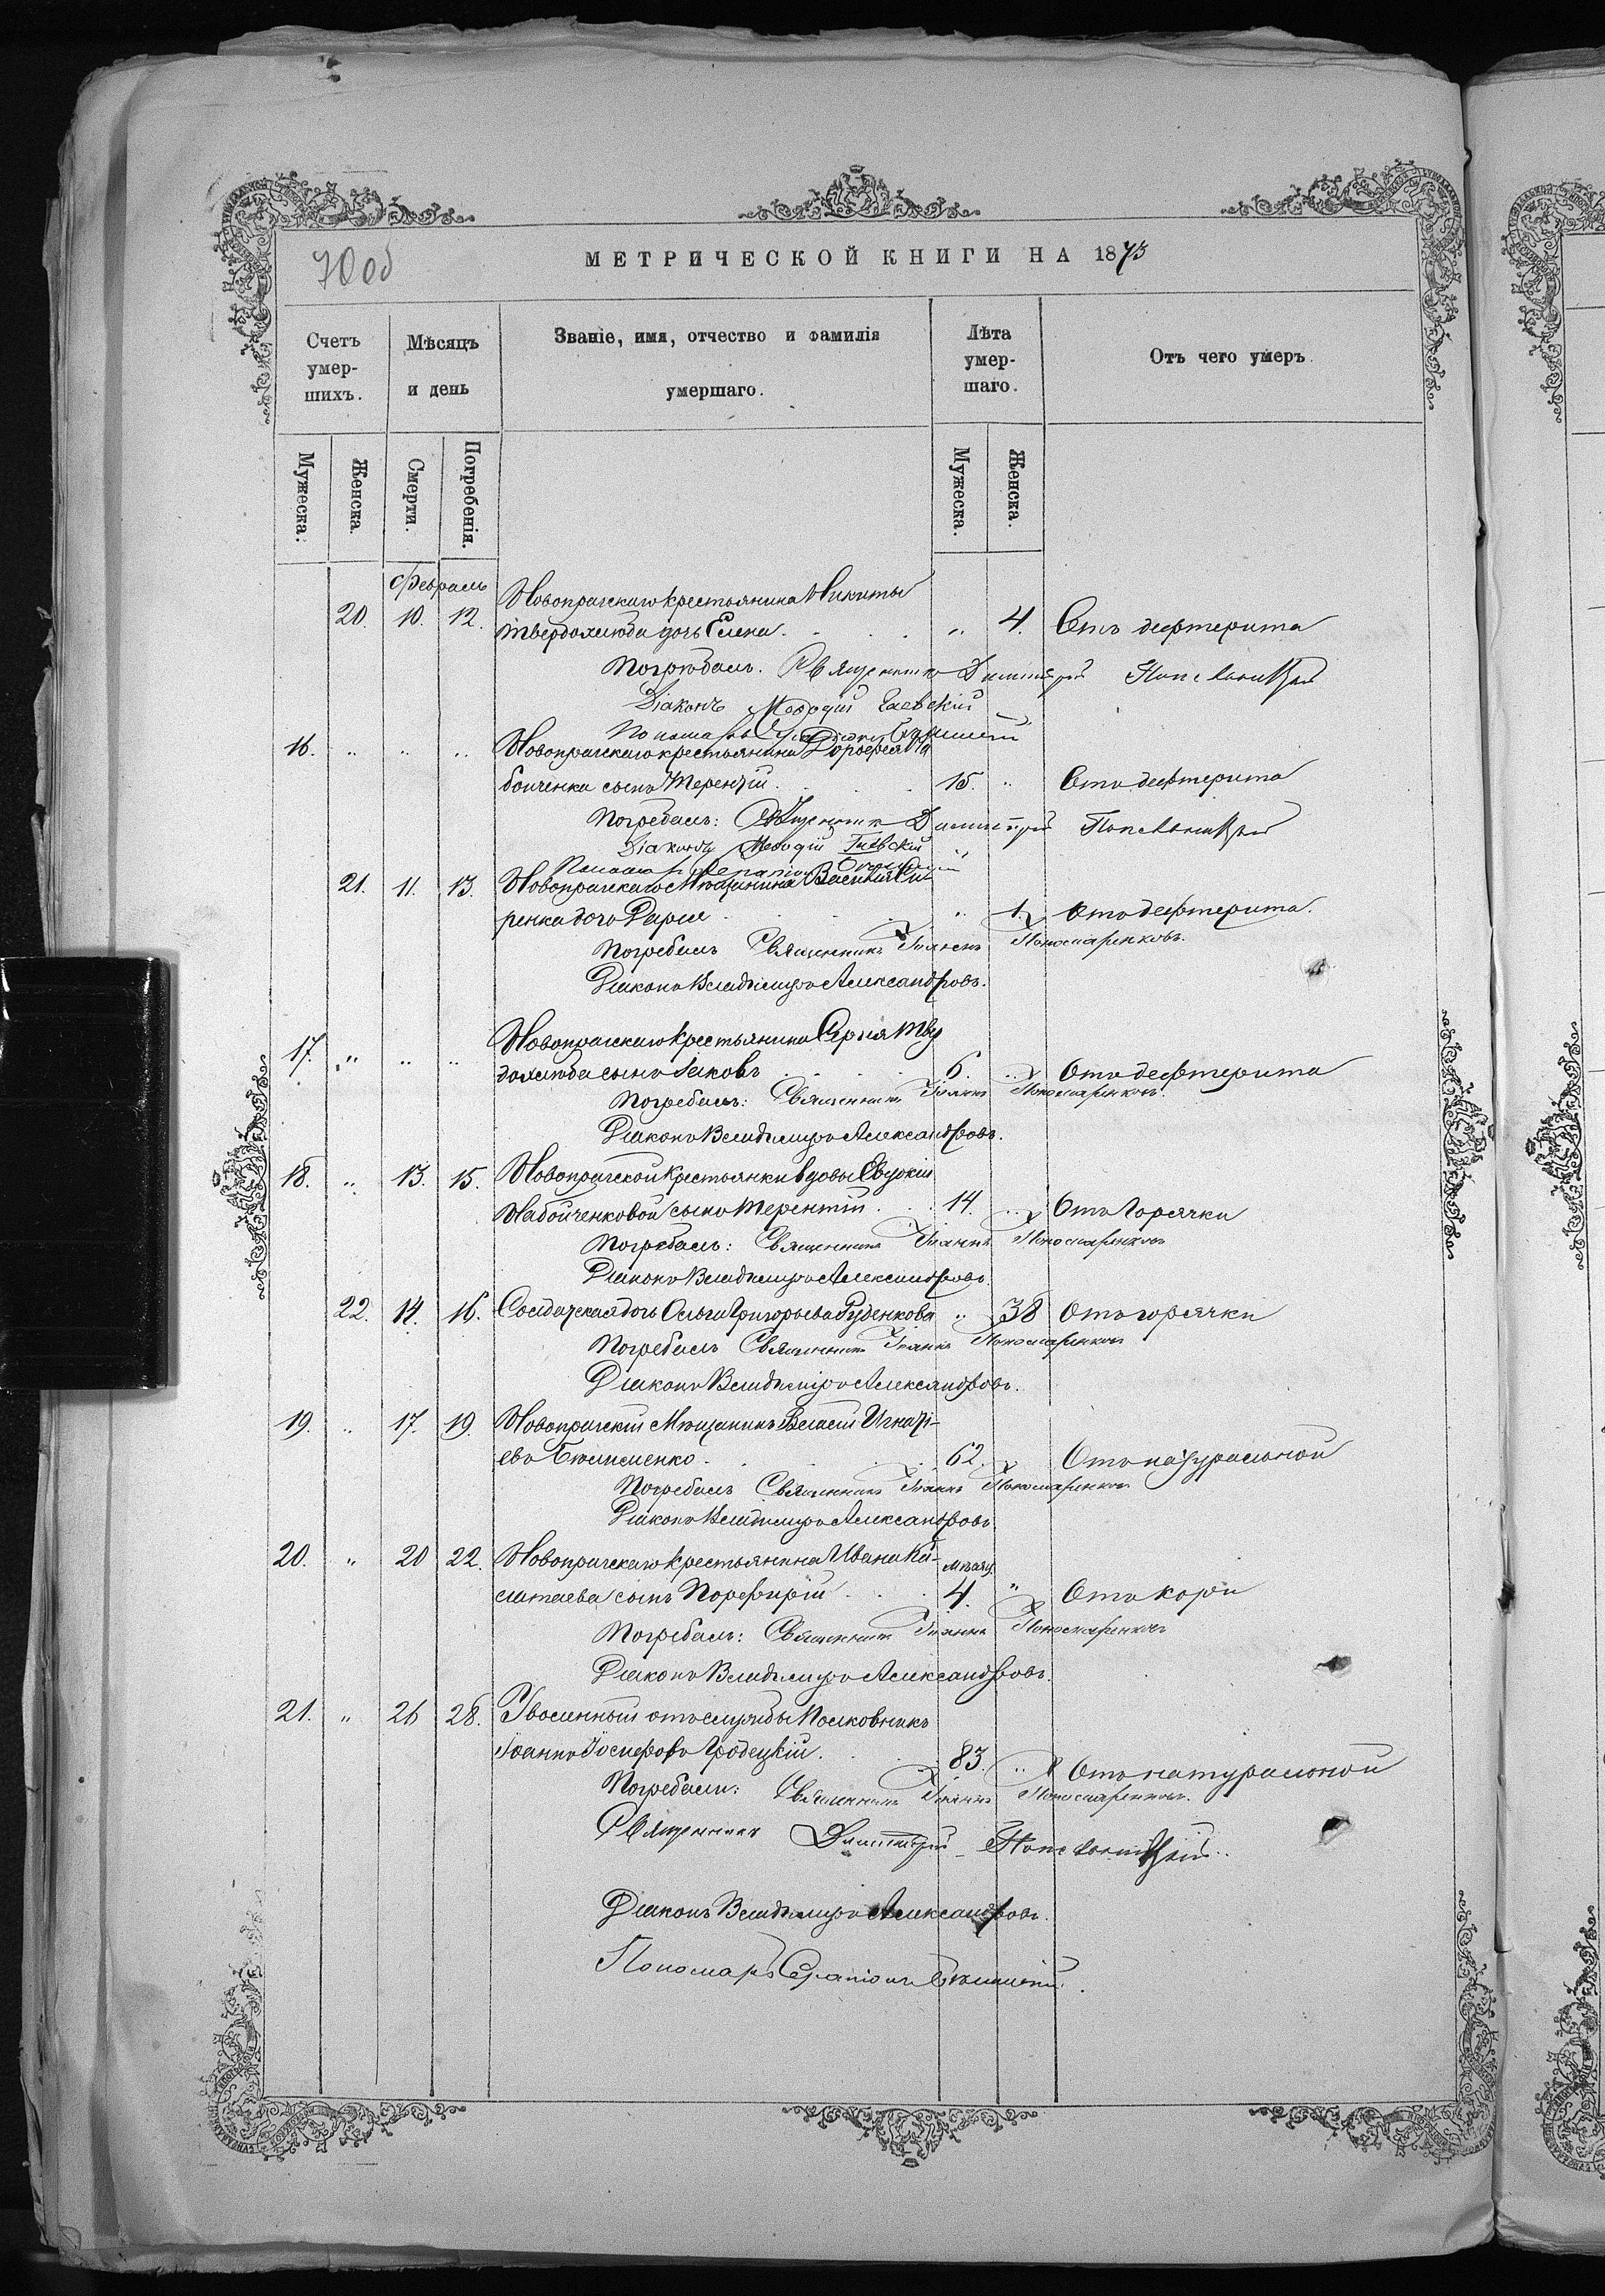 70 об
МЕТРИЧЕСКОЙ КНИГИ НА 1873
Счетъ умер-шихъ.
Мѣсяцъ и день
Званіе, имя, отчество и фамилія умершаго.
Лѣта умер-шаго.
Отъ чего умеръ.
Мужеска. Женска. Смерти. Погребенія. Мужеска. Женска.
Февраль
Новопражскаго крестьянина Никиты
20. 10. 12. Твердохлюба дочь Елена . . . „ 4. Отъ дефтерита
Погребалъ. Священникъ Димитрій
Діаконъ Меѳодій Гаевскій
Пономарь
16. „ „ „ Новопражскаго крестьянина Дорофея На
бойченка сынъ Терентій . . . 15. „ Отъ дефтерита
Погребалъ: Священникъ Димитрій
Діаконъ Меѳодій Гаевскій
Пономарь Серапіонъ
21. 11. 13. Новопражскаго Мѣщанина Василія
ренка дочь Дарья . . . „ 1. Отъ дефтерита.
Погребалъ Священникъ Іоаннъ Пономаренковъ.
Діаконъ Владиміръ Александровъ.
17. „ „ „ Новопражскаго крестьянина Сергія Твер
дохлюба сынъ Іаковъ . . . 6. „ Отъ дефтерита
Погребалъ: Священникъ Іоаннъ Пономаренковъ.
Діаконъ Владиміръ Александровъ.
18. „ 13. 15. Новопражской крестьянки вдовы Евдокіи
Набойченковой сынъ Терентій . . 14. „ Отъ горячки
Погребалъ: Священникъ Іоаннъ Пономаренковъ
Діаконъ Владиміръ Александровъ
22. 14. 16. Солдатская дочь Ольга Григорьева Руденкова „ 38 Отъ горячки
Погребалъ Священникъ Іоаннъ Пономаренковъ
Діаконъ Владиміръ Александровъ.
19. „ 17. 19. Новопражскій Мѣщанинъ Власій Игнаті-
евъ . . . 62. „ Отъ натуральной
Погребалъ Священникъ Іоаннъ Пономаренковъ
Діаконъ Владиміръ Александровъ
20. „ 20 22. Новопражскаго крестьянина Ивана Ка- мѣсяц.
сынъ Порфирій . . 4. „ Отъ кори
Погребалъ: Священникъ Іоаннъ Пономаренковъ
Діаконъ Владиміръ Александровъ.
21. „ 26 28. Уволенный отъ службы Полковникъ
Іоаннъ Іосифовъ Гродецкій. . . 83. „ Отъ натуральной
Погребали: Священникъ Іоаннъ Пономаренковъ.
Священникъ Димитрій
Діаконъ Владиміръ Александровъ.
Пономарь Серапіонъ